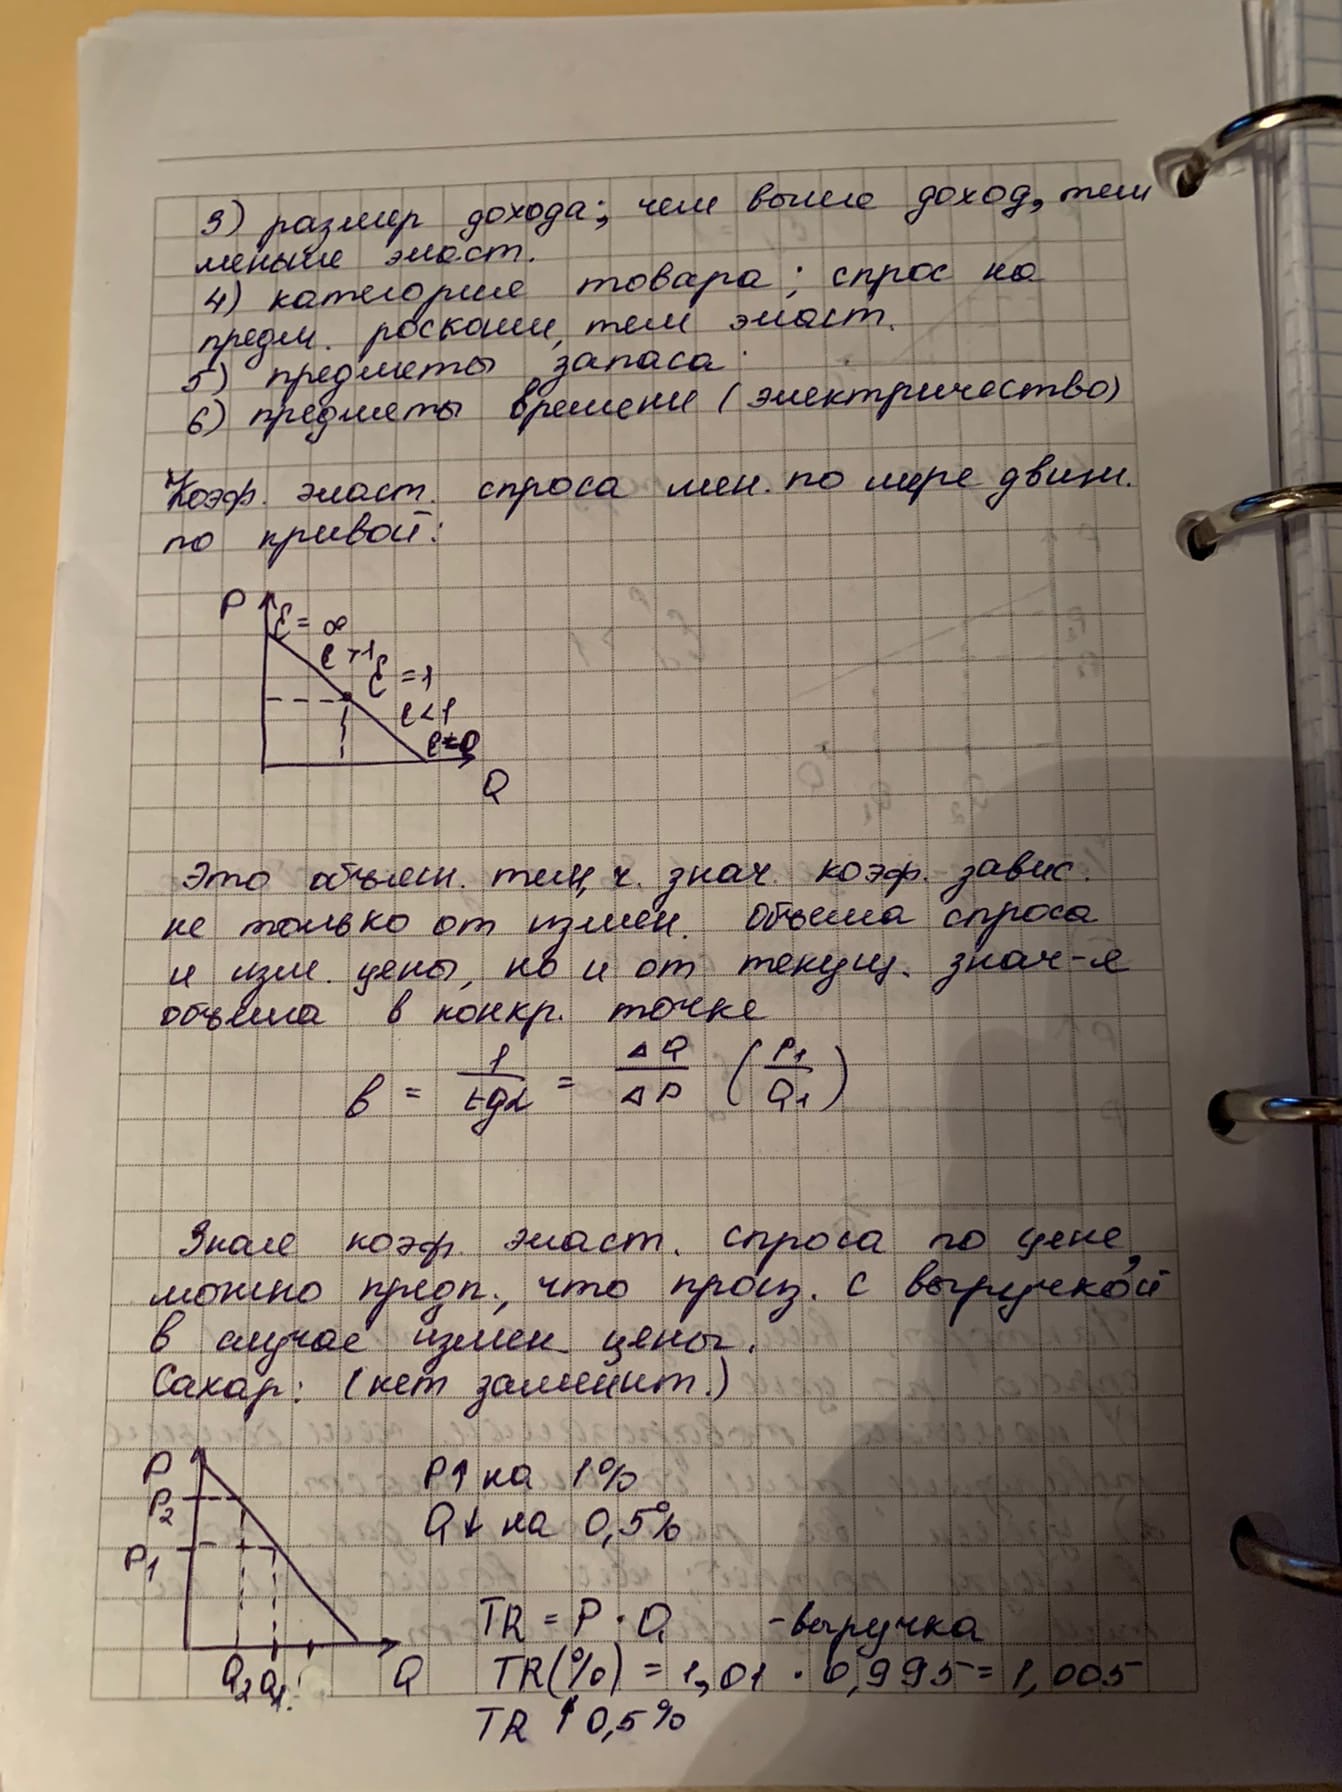 3) размер дохода; чем выше доход, тем
меньше эласт.
4) категория товара; спрос на
предм. роскоши, тем эласт.
5) предметы запаса
6) предметы времени (электричество)
Коэф. эласт. спроса мен. по мере движ.
по кривой:
P
Ɛ = ∞
e > 1
Ɛ = 1
e < 1
e = 0
Q
Это объясн. тем, ч. знач. коэф. завис.
не только от измен. объема спроса
и изм. цены, но и от текущ. знач-я
объема в конкр. точке
b = 1/tgα = ΔQ/ΔP (P1/Q1)
Зная коэф. эласт. спроса по цене,
можно предп., что произ. с выручкой
в случае измен. цены.
Сахар: (нет заменит.)
P
P2
P1
Q2 Q1
Q
P↑ на 1%
Q↓ на 0,5%
TR = P · Q - выручка
TR(%) = 1,01 · 0,995 = 1,005
TR ↑ 0,5%